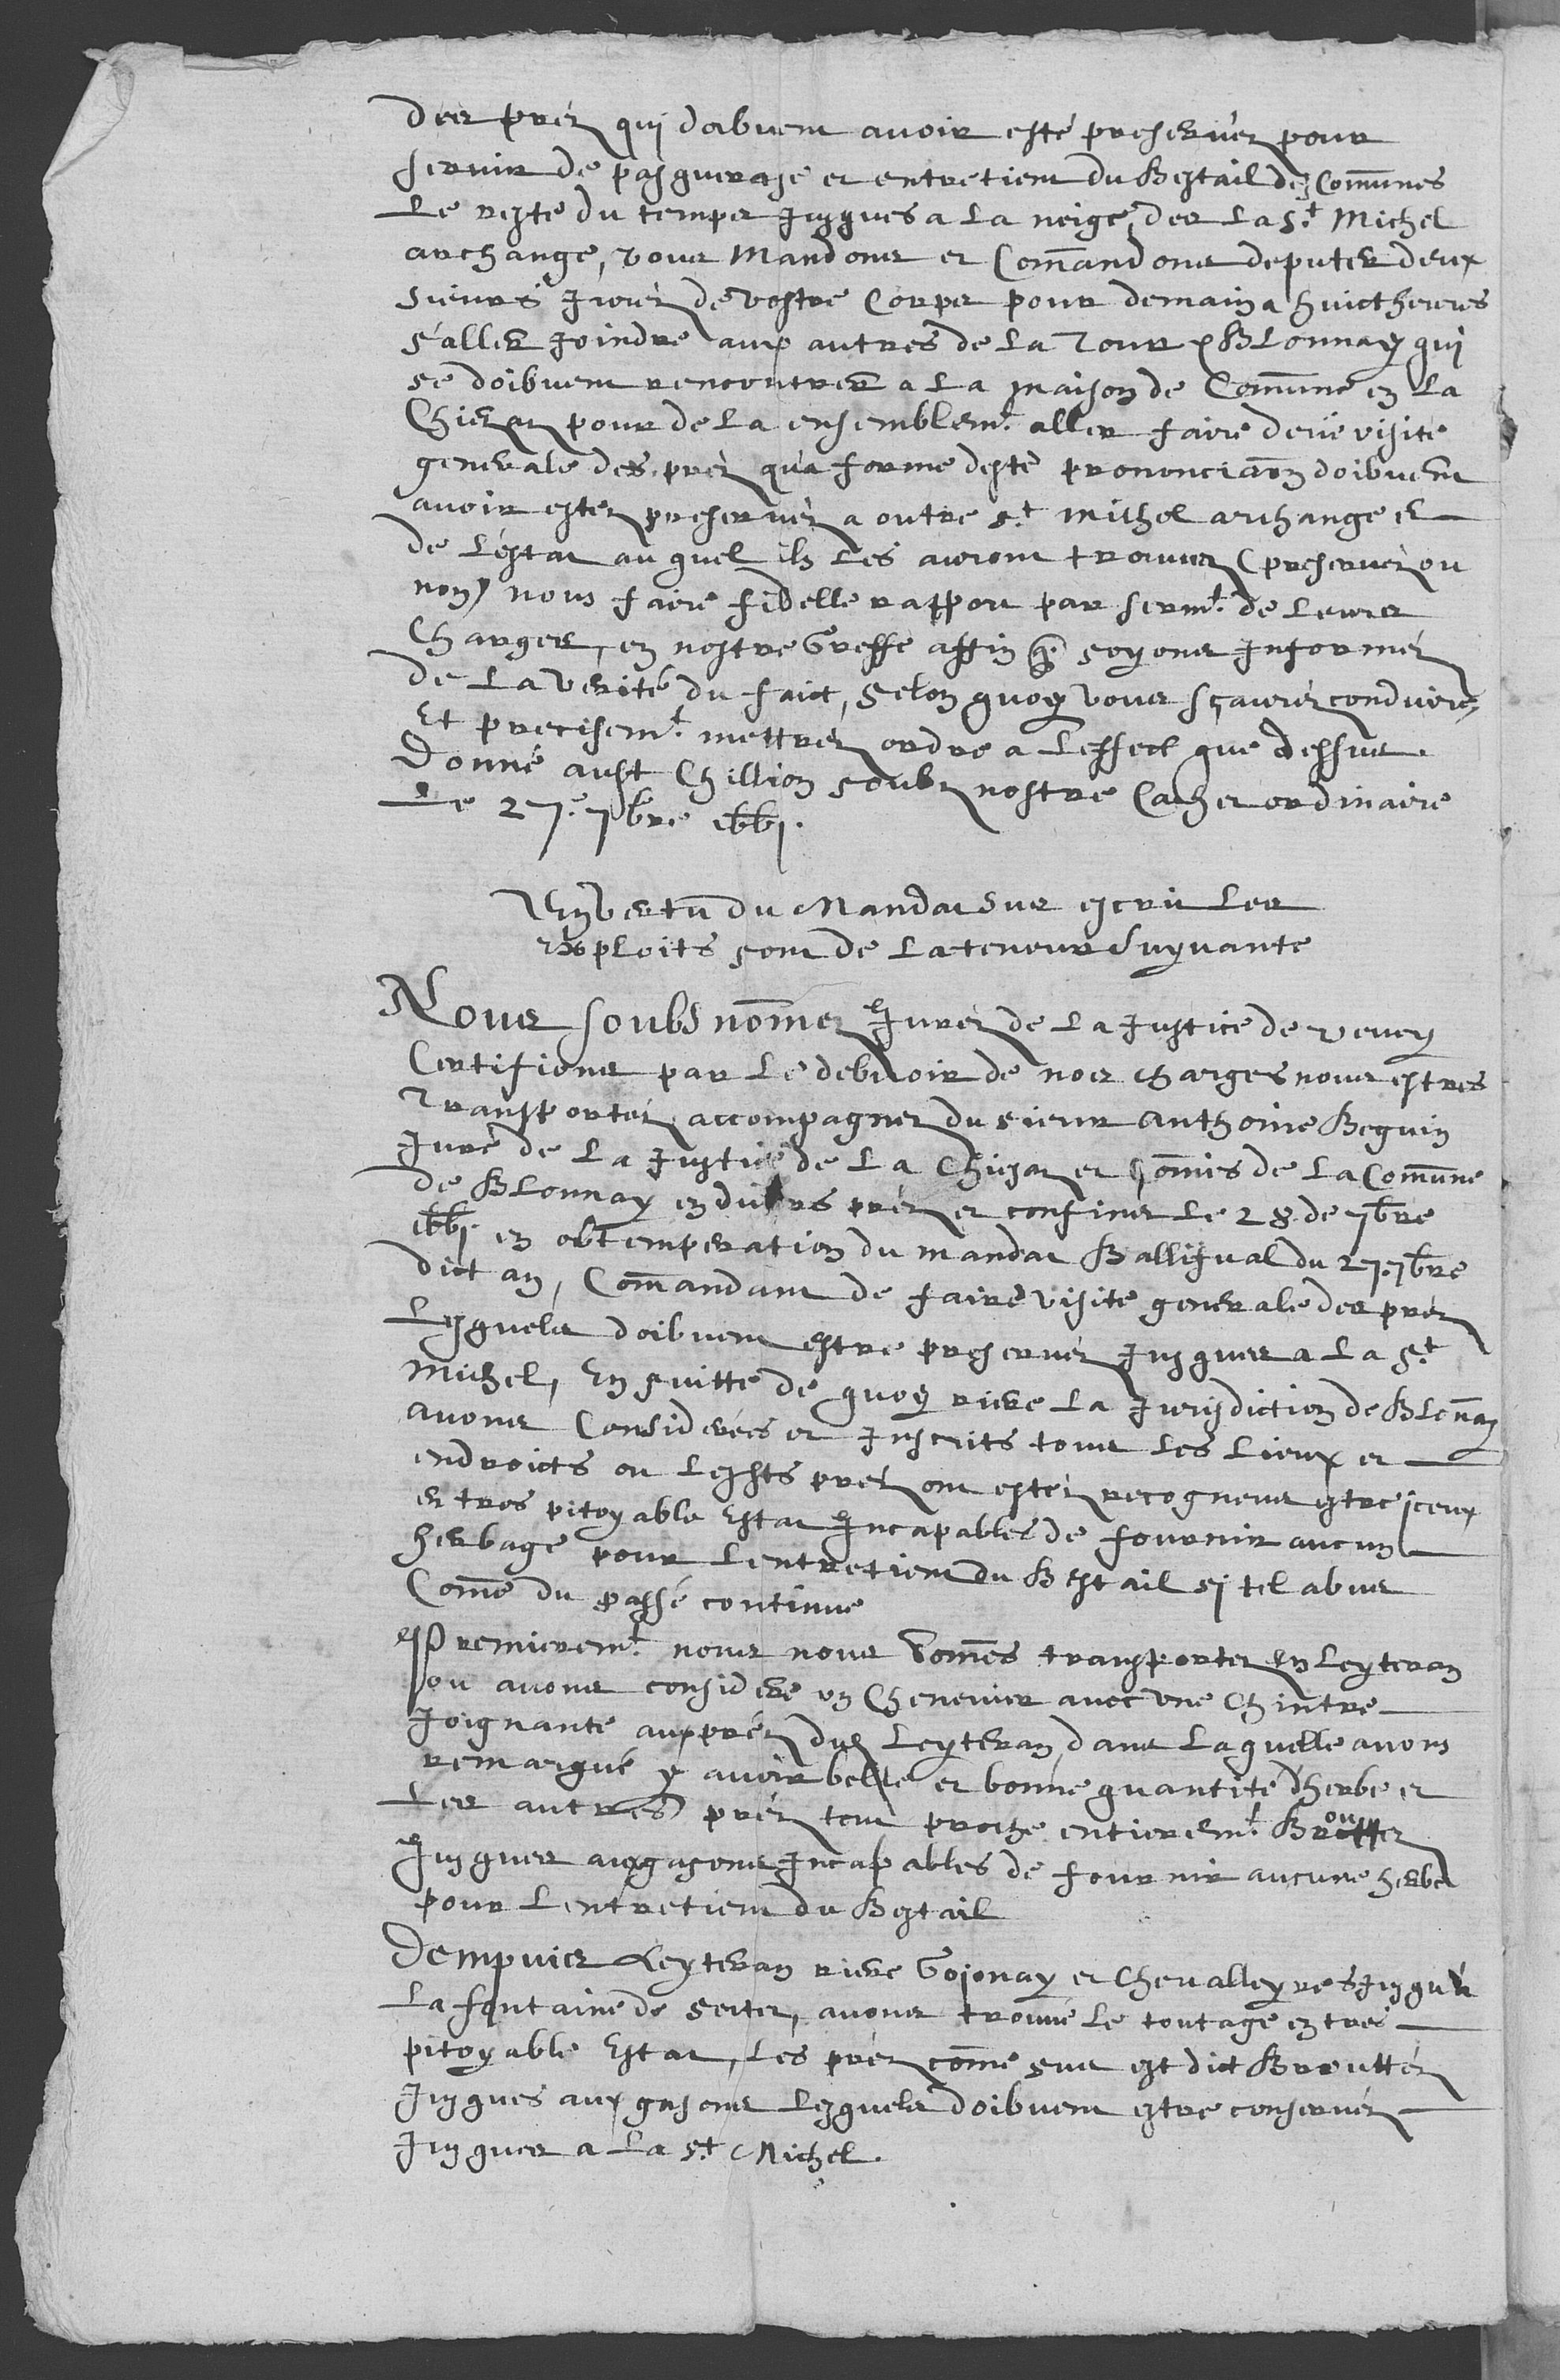 des prez qui doibvent avoir esté preservéz pour
servir de pasquerage et entretient du Bestail des Com̄unes
Le reste du temps jusques a la neige, des la S.t Michel
archange, vous Mandons et Com̄andons deputer deux
sieurs juréz de vostre Corps pour demain a huict heures
s'aller joindre aux autres de la Tour & Blonnay qui
se doibvent rencontrer a la maison de Com̄une en la
Chiesaz pour de la ensemblem.t aller faire deüe visite
generale des préz qu'a forme deste prononciaōn doibvent
avoir estez preservéz a outre S.t Michel archange et
de l'éstat auquel ils les auront trouvez (preservéz ou
non) nous faire fidelle rapport par serm.t de leurs
Charges, en nostre Greffe affin q. soyons informéz
de la verité du faict, selon quoy vous sçauréz conduire,
Et precisem.t mettréz ordre a l'effect que dessus.
Donné aust Chillion soubz nostre Cachet ordinaire
Le 27.e 7bre. 1661.
En vertu du Mandat sus escrit les
Exploits sont de la teneur suyvante
Nous soubs nōmez Juréz de la Justice de Vevey
Certifions par le debvoir de nos charges nous estres
Transportéz accompagnez du sieur Anthoine Beguin
Juré de la Justice de la Chiesaz et Com̄is de la Com̄une
de Blonnay en divers préz et confins le 28 de 7bre
1661 en obtemperation du mandat Ballifval du 27. 7bre
dict an, Com̄andant de faire visite generale des préz
Lesquels doibvent estre preservéz jusques a la S.t
Michel, En suitte de quoy riere la Jurisdiction de Blon̄ay
avons Considerées et Inscrits tous les lieux et
endroicts ou lesdts préz ont estéz recogneus estre iceux
en tres pitoyable Estat Incapables de fournir aucun
herbage pour l'entretient du Bestail si tel abus
Com̄e du passé continue
Premierem.t nous nous som̄es transportez en Leyteran
ou avons consideré un Chenevier avec une Chintre
Joignante aux préz dud Leyteran, dans laquelle avons
remarqué y avoir belle et bonne quantité d'herbe et
Les autres préz tout proche entierem.t Brouttez
Jusques aux gasons Incapables de fournir aucune herbe
pour l'entretient du Bestail
Dempuis Leyteran riere Gojonay et Chevalleyres jusqu'a
La fontaine de Settes, avons trouvé le toutage en tres
pitoyable Estat, les préz com̄e sus est dict Brouttéz
Jusques aux gasons lesquels doibvent estre conservéz
Jusques a la S.t Michel.